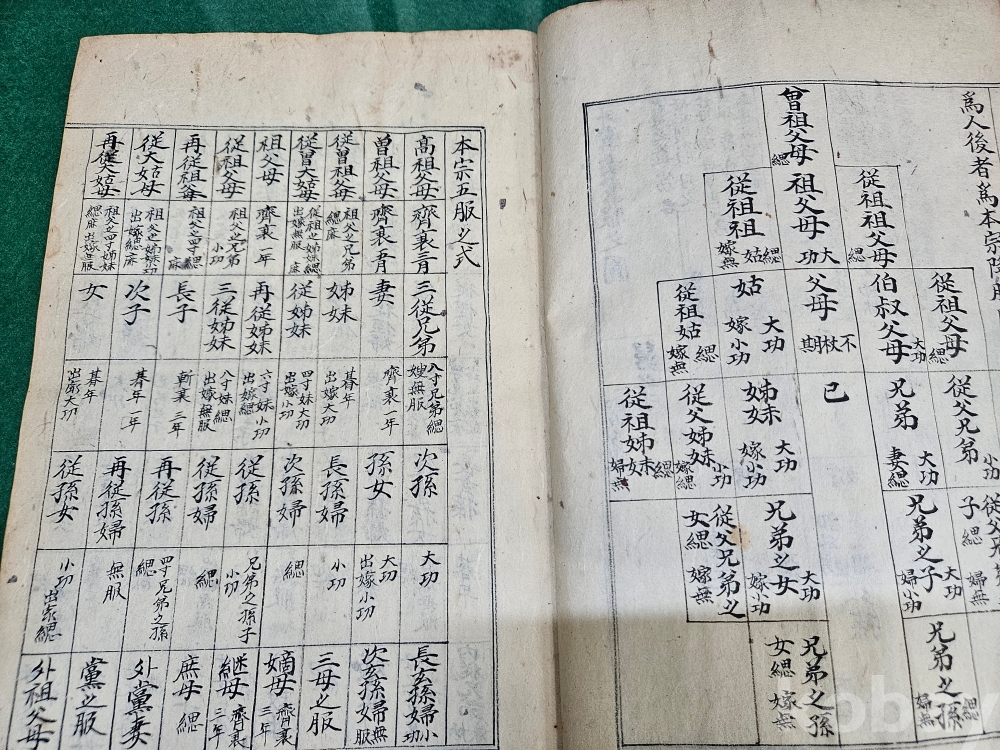 爲人後者爲本宗降服
曾祖父母 緦
從祖祖父母 緦
祖父母 大功
從祖祖姑 緦 嫁無
從祖父母 緦
伯叔父母 大功
父母 不杖期
姑 大功 嫁小功
從祖姑 緦 嫁無
從父兄弟 小功
兄弟 大功 妻緦
己
姊妹 大功 嫁小功
從父姊妹 小功 嫁緦
從祖姊妹 緦
兄弟之子 大功 婦小功
兄弟之女 大功 嫁小功
從父兄弟之女 緦 嫁無
兄弟之孫 緦 婦無
兄弟之孫女 緦 嫁無
本宗五服之式
高祖父母 齊衰三月
曾祖父母 齊衰五月
從曾祖父母 祖父之兄弟 緦麻
從曾大姑母 從祖之姊妹緦 出嫁無服
祖父母 齊衰一年
從祖父母 祖父之兄弟 小功
再從祖父母 祖父之四寸緦麻
從大姑母 祖父之姊妹小功 出嫁緦麻
再從大姑母 祖父之四寸姊妹 緦麻出嫁無服
三從兄弟 八寸兄弟緦 嫂無服
妻 齊衰一年
姊妹 朞年 出嫁大功
從姊妹 四寸妹大功 出嫁小功
再從姊妹 六寸妹小功 出嫁緦
三從姊妹 八寸妹緦 出嫁無服
長子 斬衰三年
次子 朞年一年
女 朞年 出嫁大功
次孫 大功
孫女 大功 出嫁小功
長孫婦 小功
次孫婦 緦
從孫 兄弟之孫子 小功
從孫婦 緦
再從孫 四寸兄弟之孫 緦
再從孫婦 無服
從孫女 小功 出家緦
長玄孫婦 小功
次玄孫婦 無服
三母之服
嫡母 齊衰三年
継母 齊衰三年
庶母 緦
外黨妻
黨之服
外祖父母